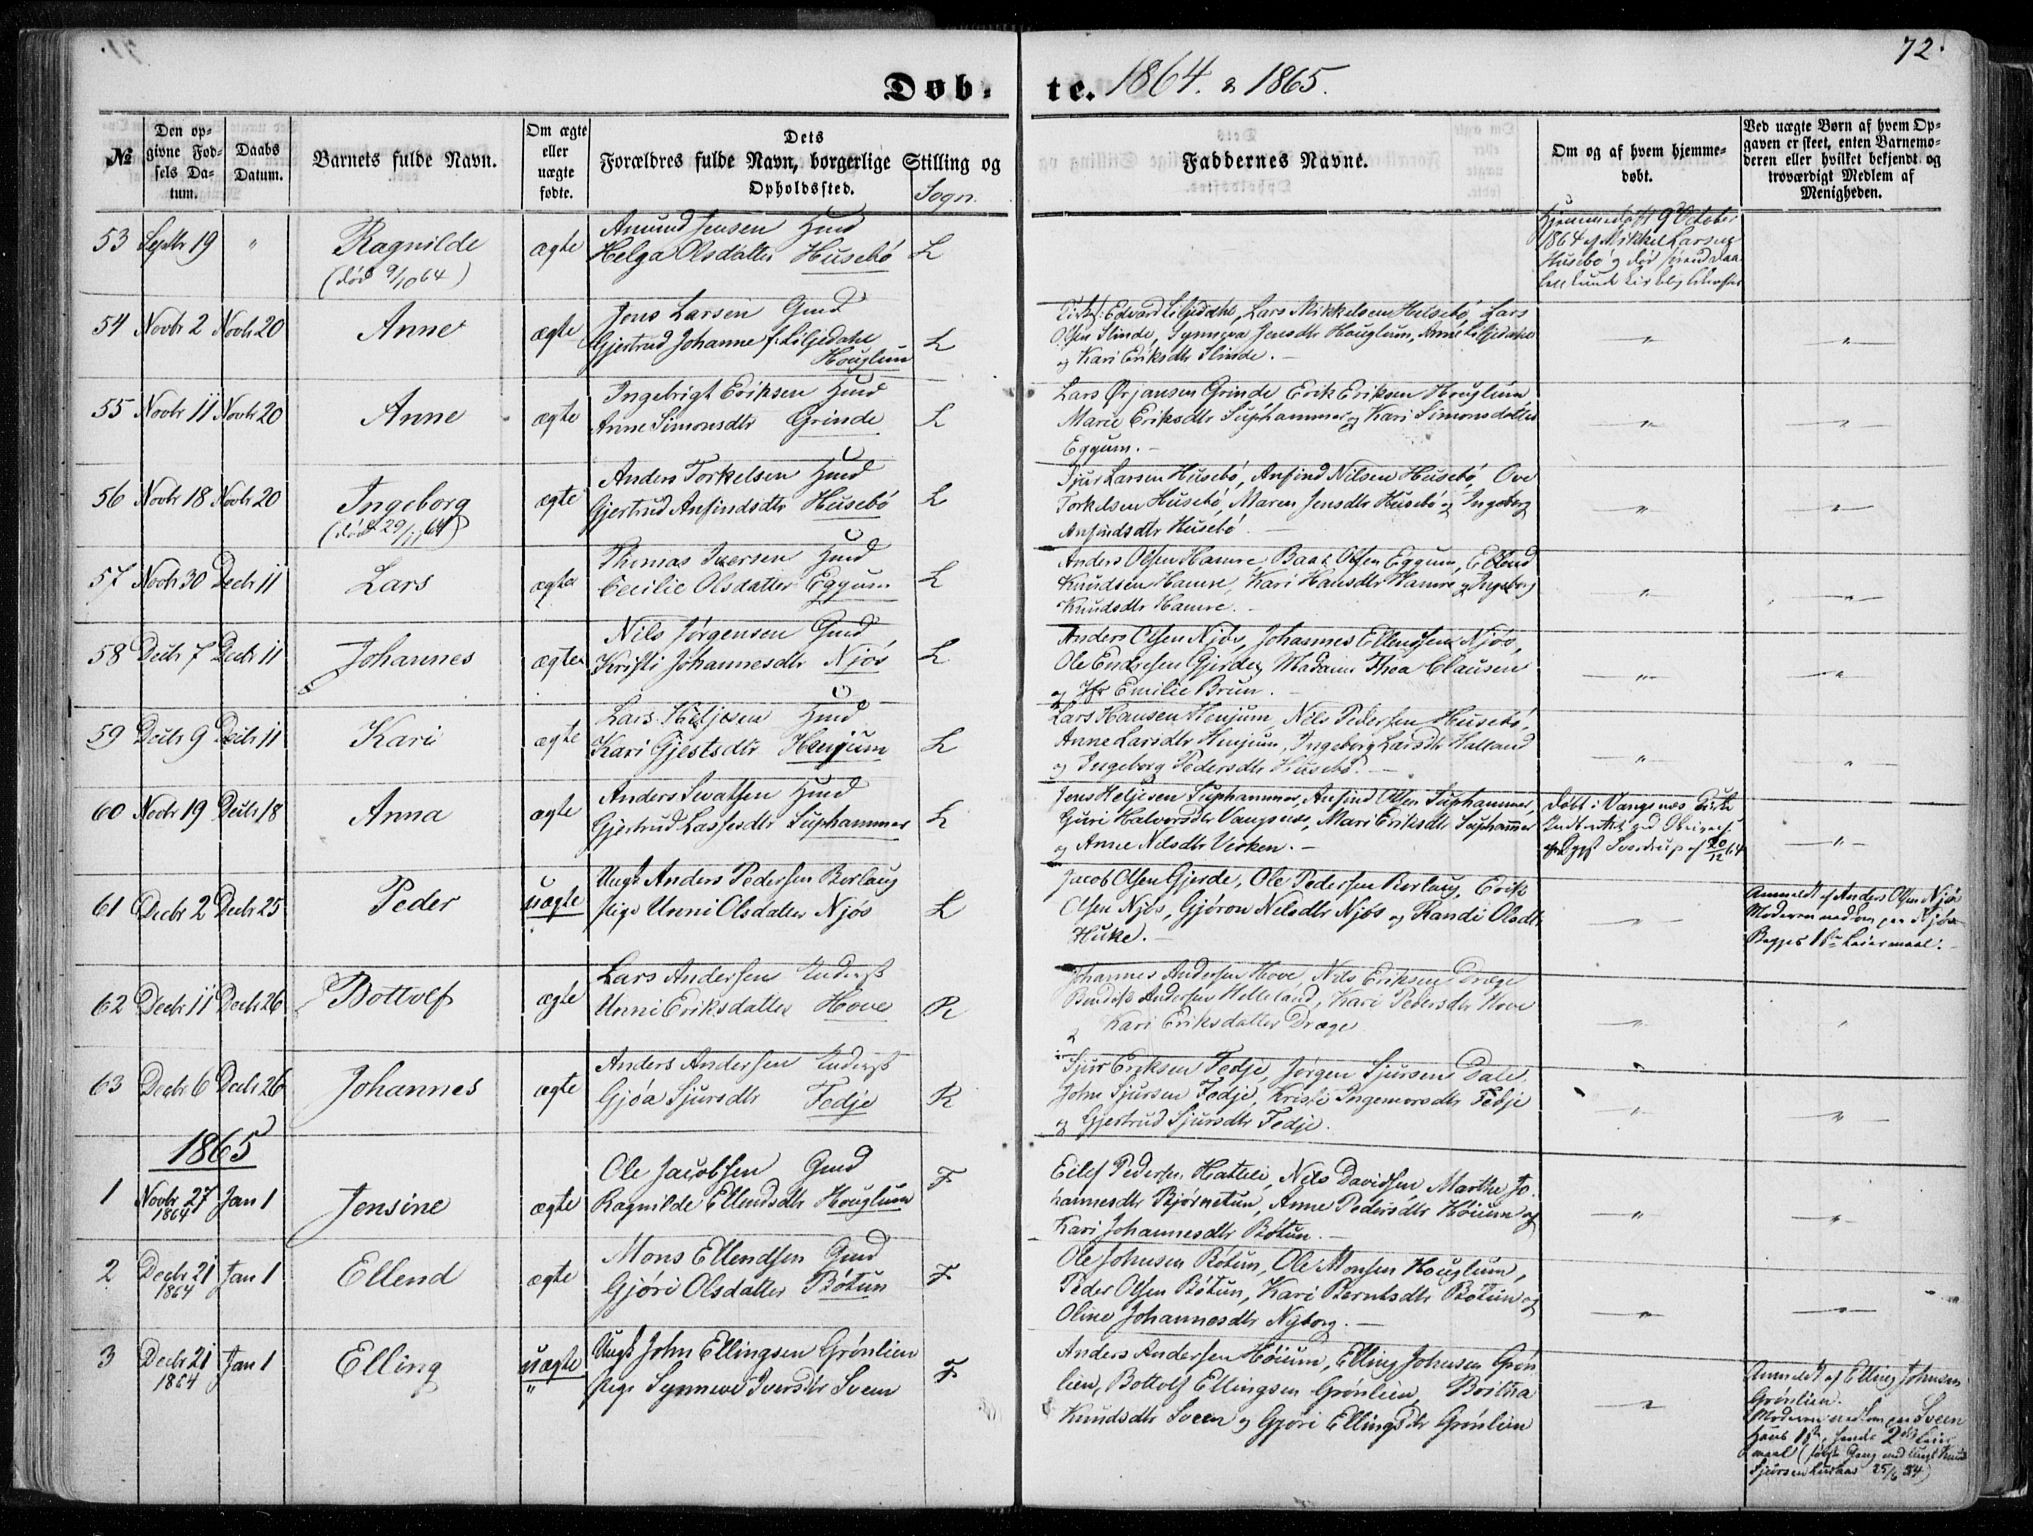 72.
Døb-
te. 1864. & 1865.
№
Den op-
givne Fød-
sels Da-
tum.
Daabs
Datum.
Barnets fulde Navn.
Om ægte
eller
uægte
fødte.
Dets
Forældres fulde Navn, borgerlige Stilling og
Opholdssted.
Sogn.
Faddernes Navne.
Om og af hvem hjemme-
døbt.
Ved uægte Børn af hvem Op-
gaven er skeet, enten Barnemo-
deren eller hvilket bekjendt og
troværdigt Medlem af
Menigheden.
53 Septbr 19 " Ragnilde
(død 9/10 64)
ægte
Amund Jensen Hmd
Helga Olsdatter Husebø L
Hjemmedøbt 9 October
1864 af Mikkel Larsen
Husebø og død
54 Novbr 2 Novbr 20 Anne ægte
Jens Larsen Gmd
Gjertrud Johanne f. Liljedahl
Houglum L
Edvard Liljedahl, Lars Mikkelsen Husebø, Lars
Olsen Slinde, Synneva Jensdtr Houglum, Anne Liljedahl
og Kari Eriksdtr Slinde.
" "
55 Novbr 11 Novbr 20 Anne ægte
Ingebrigt Eriksen Hmd
Anne Simonsdtr Grinde L
Lars Ørjansen Grinde Erik Eriksen Houglum
Marie Eriksdtr Suphammer og Kari Simonsdatter
Eggum.
" "
56 Novbr 18 Novbr 20 Ingeborg
(død 29/11 64)
ægte
Anders Torkelsen Hmd
Gjertrud Anfindsdtr Husebø L
Sjur Larsen Husebø, Anfind Nilsen Husebø, Ove
Torkelsen Husebø, Maren Jensdtr Husebø og Ingeborg
Anfindsdtr Husebø
" "
57 Novbr 30 Decbr 11 Lars ægte
Thomas Iversen Hmd
Cecilie Olsdatter Eggum L
Anders Olsen Hamre, Baat Olsen Eggum, Ellend
Knudsen Hamre, Kari Hansdtr Hamre og Ingeborg
Knudsdtr Hamre.
" "
58 Decbr 7 Decbr 11 Johannes ægte
Nils Jørgensen Gmd
Kristi Johannesdtr Njøs L
Anders Olsen Njøs, Johannes Ellingsen Njøs,
Ole Endresen Gjerde, Madame Thea Clausen
og Jfr Emilie Brun.
" "
59 Decbr 9 Decbr 11 Kari ægte
Lars Heljesen Hmd
Kari Gjestsdtr Henjum L
Lars Hansen Henjum, Nils Pedersen Husebø,
Anne Larsdtr Henjum, Ingeborg Larsdtr Halland
og Ingeborg Pedersdtr Husebø.
" "
60 Novbr 19 Decbr 18 Anna ægte
Anders Hmd
Gjertrud Lassesdtr Suphammer L
Jens Heljesen Suphammer, Anfind Olsen Suphammer,
Guri Halvorsdtr Vangsnes, Mari Eriksdtr Suphammer
og Anne Nilsdtr Verken.
Døbt i Vangsnæs Kirke
Sverdrup af 20/12 64
"
61 Decbr 2 Decbr 25 Peder uægte
Ungk Anders Pedersen Borlaug
Pige Unni Olsdatter Njøs L
Jacob Olsen Gjerde, Ole Pedersen Borlaug, Erik
Olsen Njøs, Gjøron Nilsdtr Njøs og Randi Olsdtr
Huke.
"
Anmeldt af Anders Olsen Njøs
Moderen nedkom paa Njøs
Begges 1ste Leiermaal.
62 Decbr 11 Decbr 26 Bottolf ægte
Lars Andersen Inderst
Unni Eriksdatter Hove R
Johannes Andersen Hove, Nils Eriksen Dræge
Bendik Andersen Helleland, Kari Pedersdtr Hove
& Kari Eriksdatter Dræge
" "
63 Decbr 6 Decbr 26 Johannes ægte
Anders Andersen Inderst
Gjøa Sjursdtr Fedje R
Sjur Eriksen Fedje, Jørgen Sjursen Dale
John Sjursen Fedje, Kristi Ingemorsdtr Fedje
og Gjertrud Sjursdtr Fedje.
" "
1865
1 Novbr 27
1864 Jan 1 Jensine ægte
Ole Jacobsen Gmd
Ragnilde Ellendsdtr Houglum F
Eilef Pedersen Hatteli, Nils Davidsen, Marthe Jo-
hannesdtr Bjørnetun, Anne Pedersdtr Høium og
Kari Johannesdtr Bøtun.
" "
2 Decbr 21
1864 Jan 1 Ellend ægte
Mons Ellendsen Gmd
Gjøri Olsdatter Bøtun F
Ole Johnsen Bøtun, Ole Monsen Houglum,
Peder Olsen Bøtun, Kari Berntsdtr Bøtun og
Oline Johannesdtr Nyborg.
" "
3 Decbr 21
1864 Jan 1 Elling uægte
"
Ungk John Ellingsen Grønlien
Pige Synneve Iversdtr Sveen F
Anders Andersen Høium, Elling Johnsen Grøn-
lien, Bottolf Ellingsen Grønlien, Britha
Knudsdtr Sveen og Gjøri Ellingsdtr Grønlien
"
Anmeldt af Elling Johnsen
Grønlien.
Moderen nedkom paa Sveen
Hans 1ste, hendes 2det Leier
maal (første Gang med Ungk Knud
Sjursen 25/6 54)